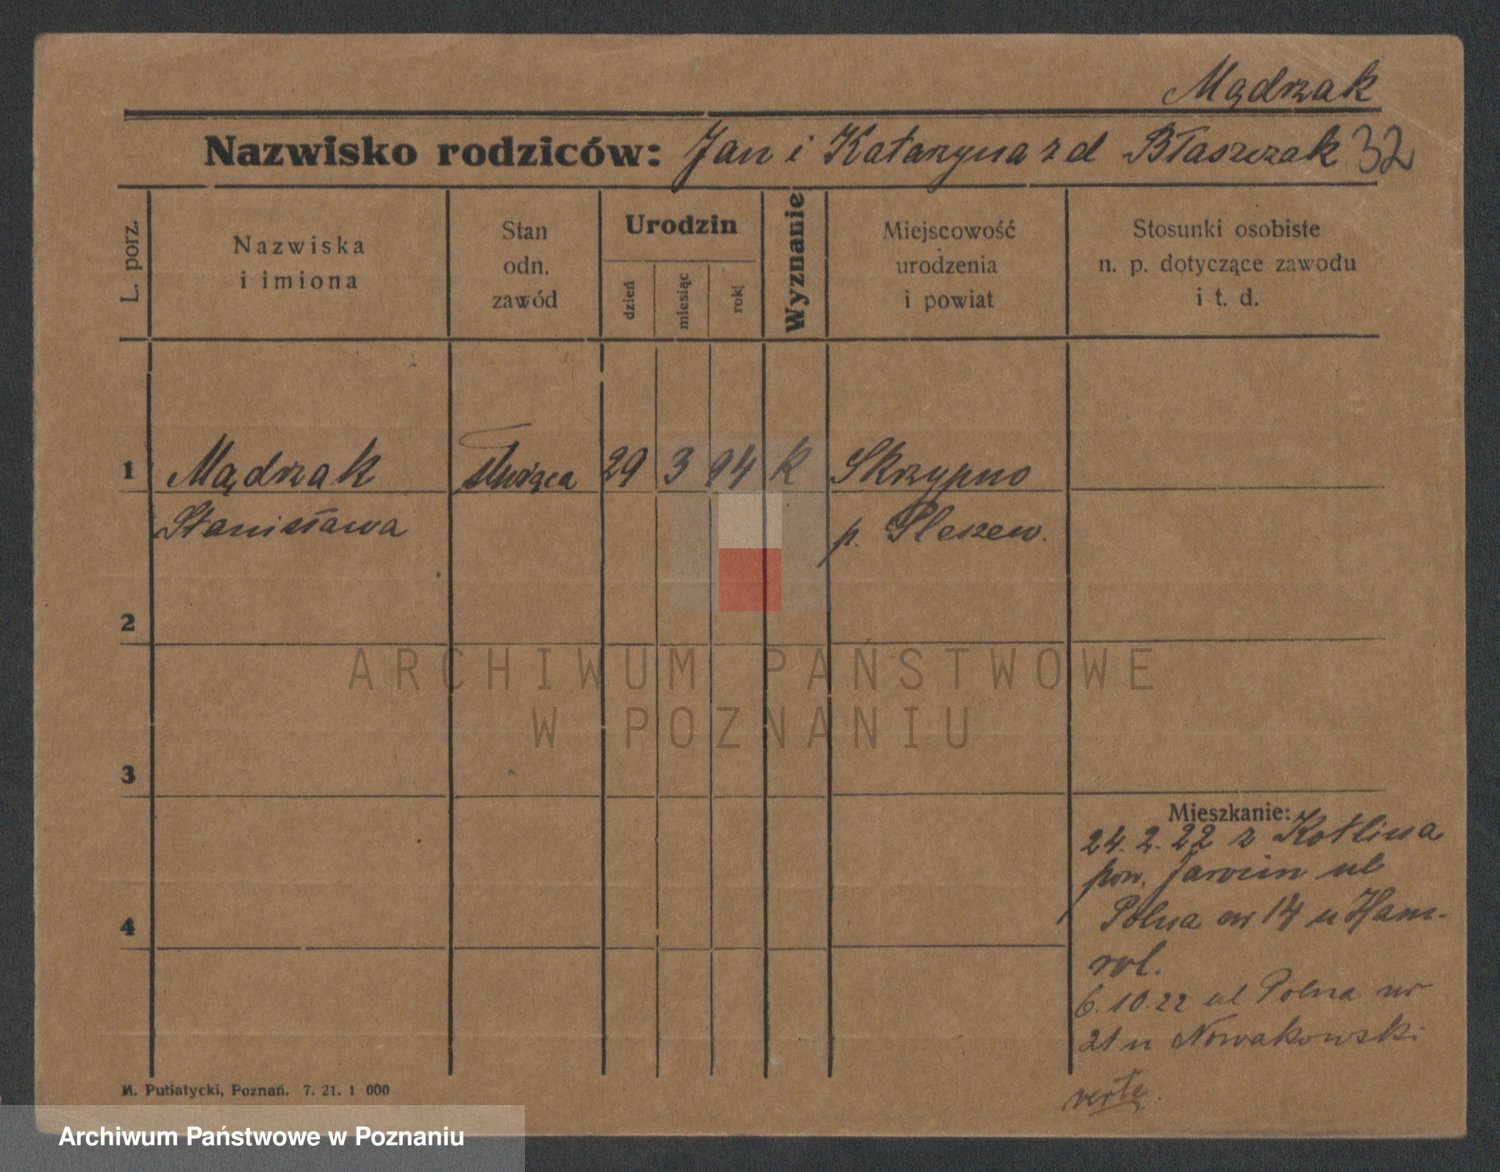 Mądrzak
Nazwisko rodziców: Jan i Katarzyna z d Błaszczak 32
L. porz.
Nazwiska
i imiona
Stan
odn.
zawód
Urodzin
dzień
miesiąc
rok
Wyznanie
Miejscowość
urodzenia
i powiat
Stosunki osobiste
n. p. dotyczące zawodu
i t. d.
1 Mądrzak służąca 29 3 94 k Skrzypno
Stanisława p. Pleszew.
2
ARCHIWUM PAŃSTWOWE
W POZNANIU
3
Mieszkanie:
24.2.22 z Kotlina
pow. Jarocin ul
Polna nr 14 u Ham-
rol.
4
6.10.22 ul Polna nr
21 u Nowakowski
verte.
M. Putiatycki, Poznań. 7. 21. 1 000
Archiwum Państwowe w Poznaniu